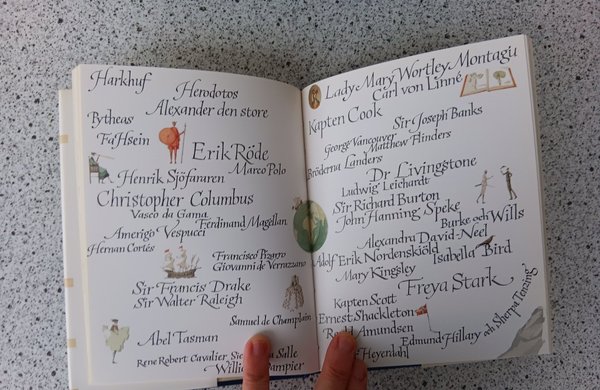 Harkhuf
Herodotos
Alexander den store
Pytheas
Fa Hsein
Erik Röde
Marco Polo
Henrik Sjöfararen
Christopher Columbus
Vasco da Gama
Ferdinand Magellan
Amerigo Vespucci
Hernan Cortés
Francisco Pizaro
Giovanni de Verrazano
Sir Francis Drake
Sir Walter Raleigh
Samuel de Champlain
Abel Tasman
Rene Robert Cavalier Salle
Dampier
Lady Mary Wortley Montagu
Carl von Linné
Kapten Cook
Sir Joseph Banks
George Vancouver
Matthew Flinders
Bröderna Landers
Dr Livingstone
Ludwig Leichardt
Sir Richard Burton
John Hanning Speke
Burke och Wills
Alexandra David-Neel
Adolf Erik Nordenskiöld
Isabella Bird
Mary Kingsley
Freya Stark
Kapten Scott
Ernest Shackleton
Amundsen
Edmund Hillary och Sherpa Tenzing
Heyerdahl